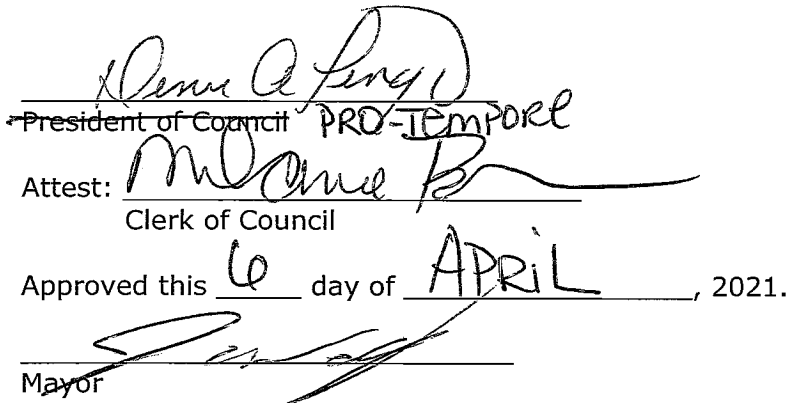 President of Council PRO-TEMPORE
Attest:
Clerk of Council
Approved this 6 day of APRIL, 2021.
Mayor